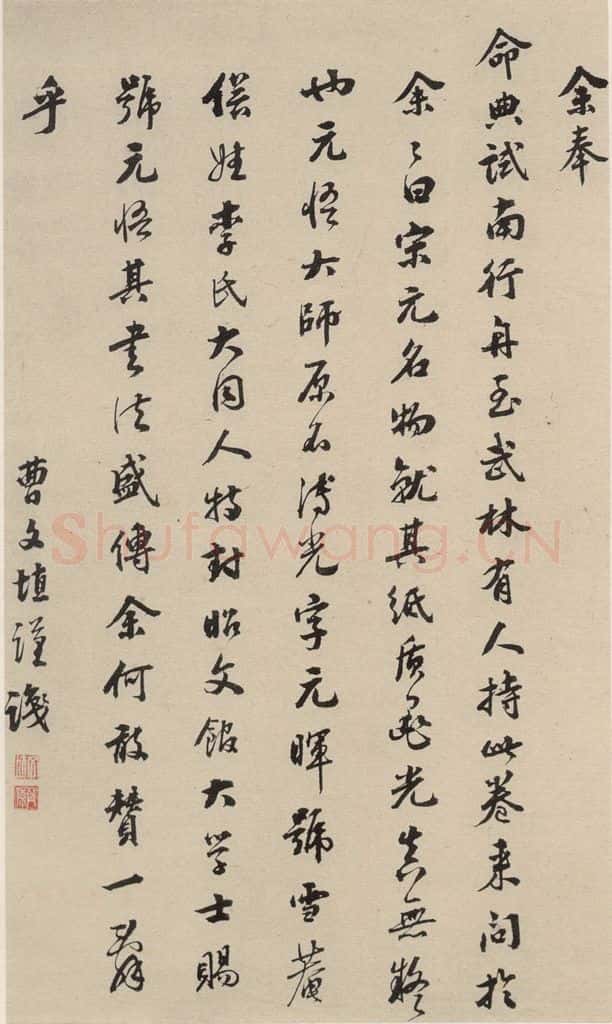 余奉
命典試南行舟至武林有人持此卷來問於
余々曰宋元名物就其紙質墨光真無疑
也元悟大師原名溥光字元暉號雪菴
俗姓李氏大同人特封昭文館大學士賜
號元悟其書法盛傳余何敢贊一辭
乎
曹文埴謹識
Shufawang.CN